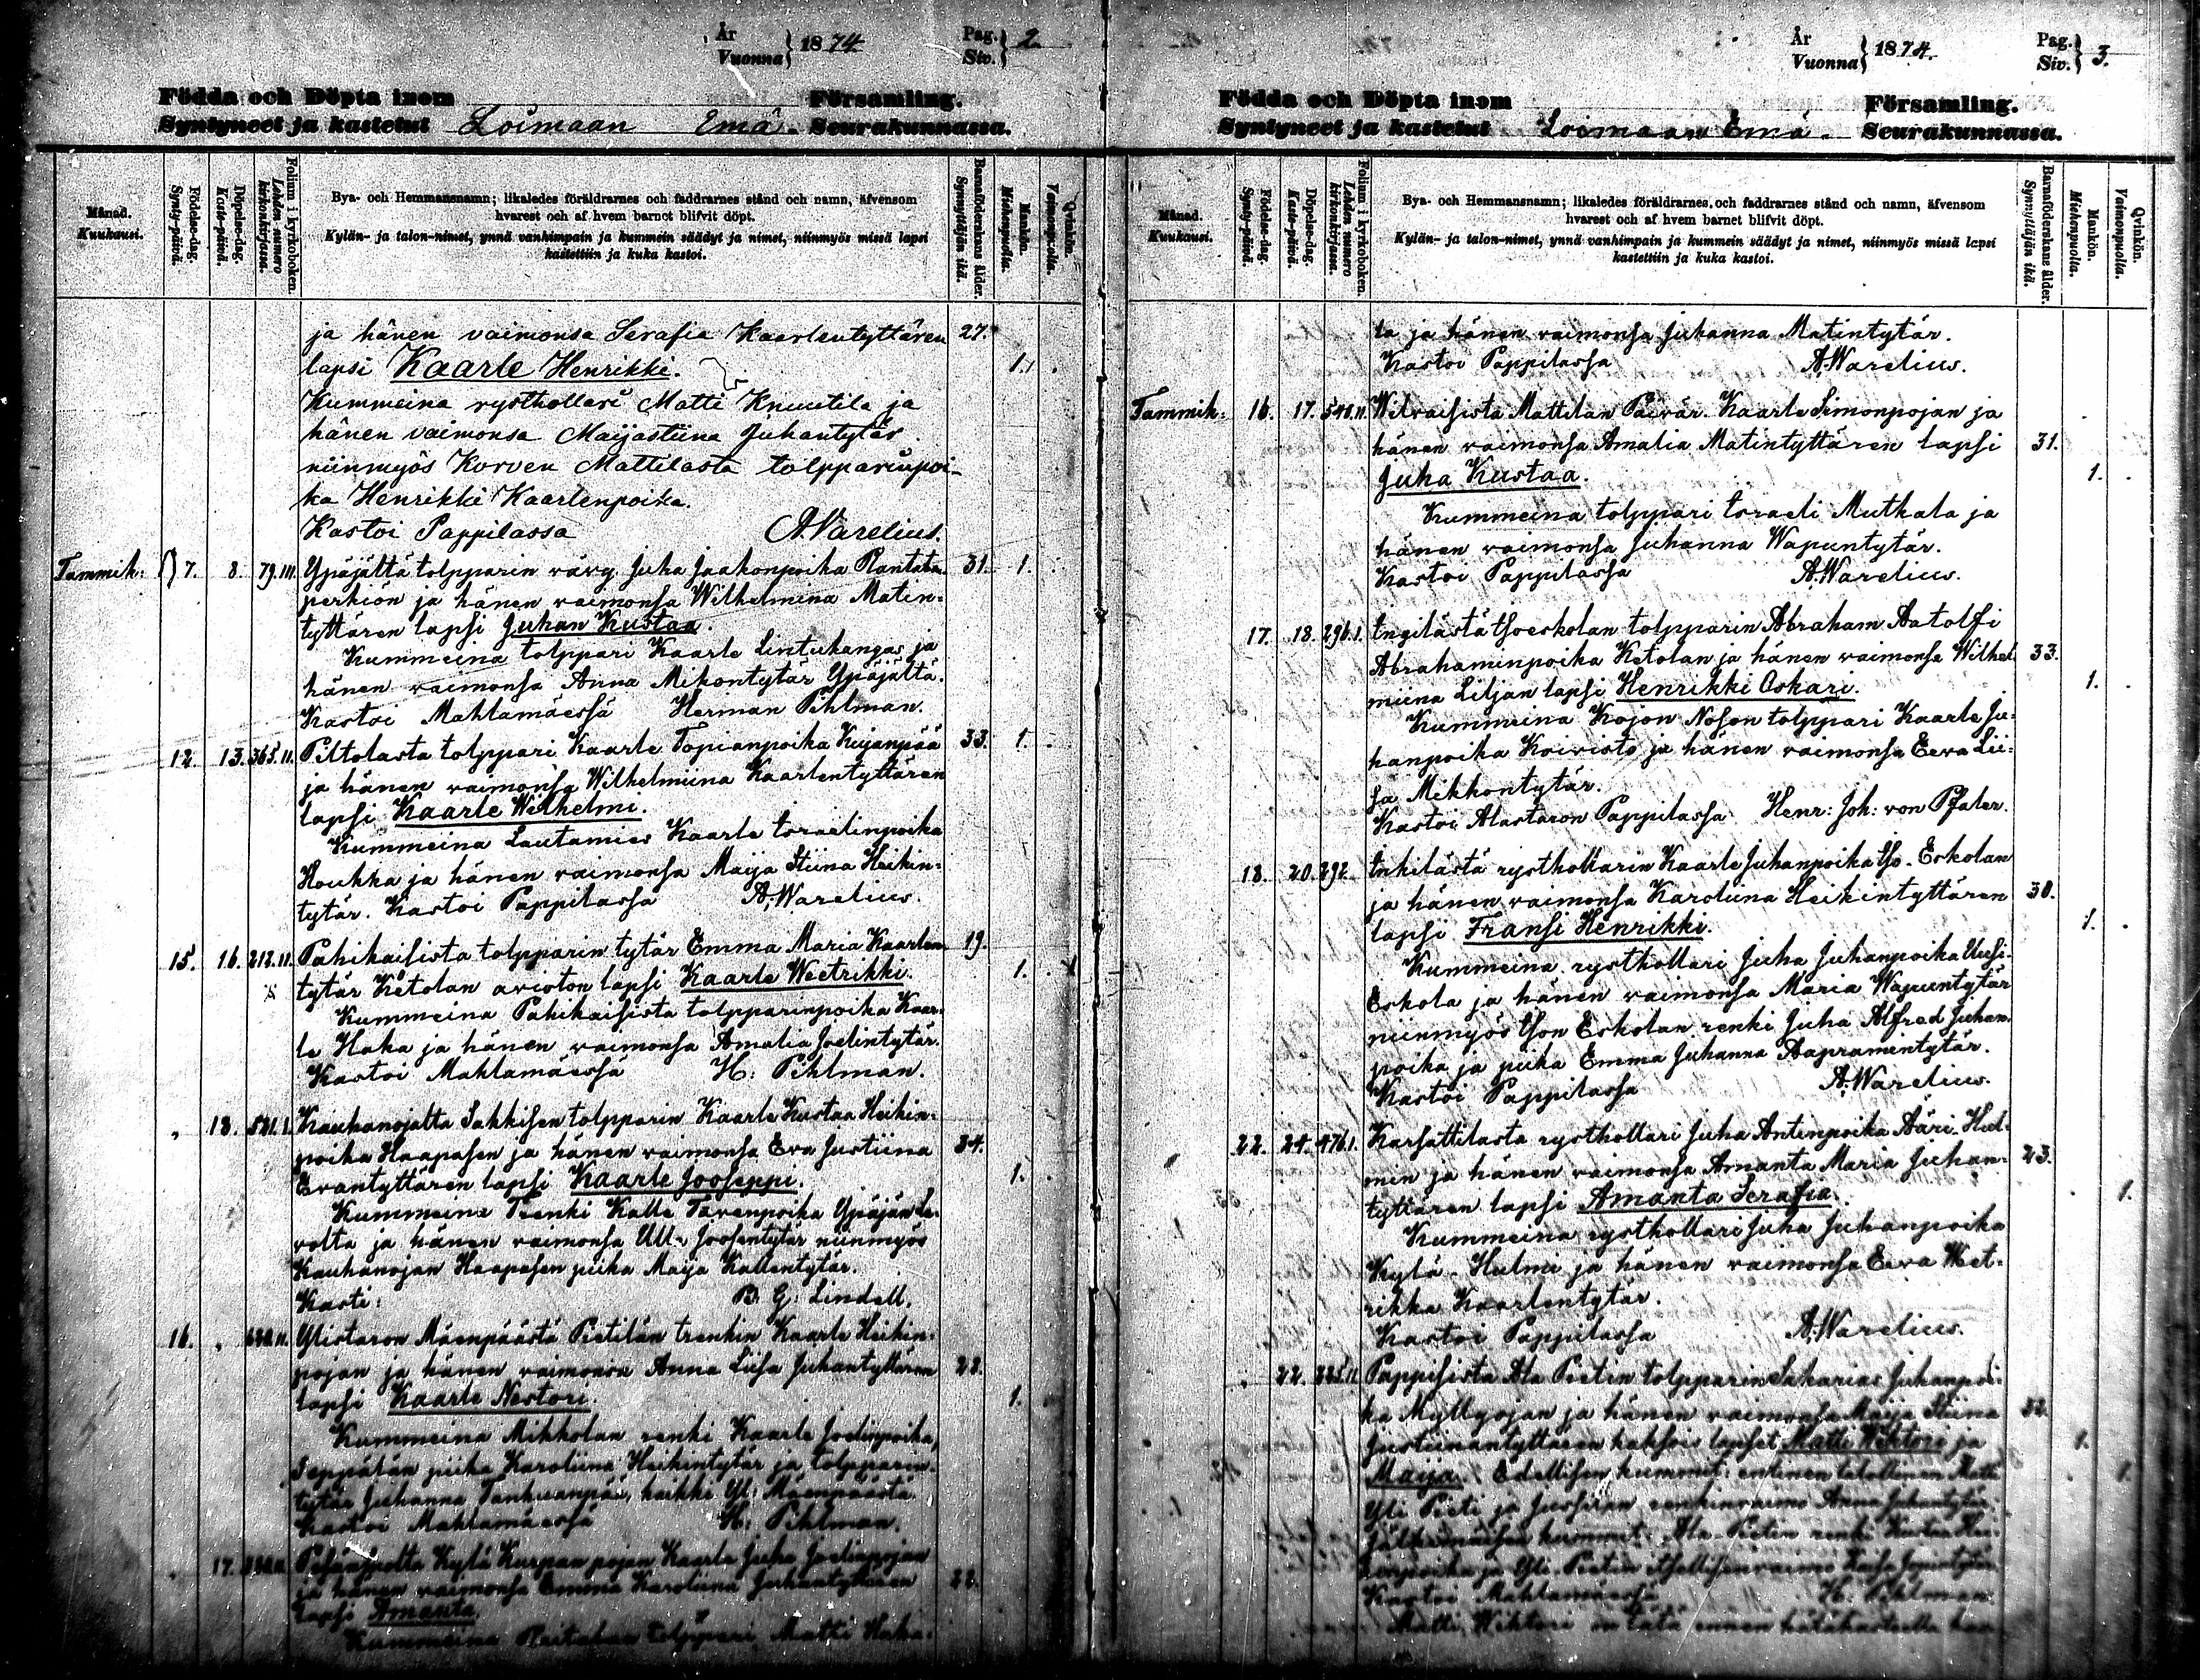 År
Vuonna } 1874
Pag.
Siv. } 2
Födda och Döpta inom Församling.
Syntyneet ja kastetut Loimaan Emä. Seurakunnassa.
Månad.
Kuukausi.
Födelse-dag.
Synty-päivä.
Döpelse-dag.
Kaste-päivä.
Folium i kyrkoboken.
Lehden numero
kirkonkirjassa.
Bya- och Hemmansnamn; likaledes föräldrarnes och faddrarnes stånd och namn, äfvensom
hvarest och af hvem barnet blifvit döpt.
Kylän- ja talon-nimet, ynnä vanhimpain ja kummein säädyt ja nimet, niinmyös missä lapsi
kastettiin ja kuka kastoi.
Barnaföderskans ålder.
Synnyttäjän ikä.
Mankön.
Miehenpuolia.
Qvinkön.
Vaimonpuolia.
ja hänen vaimonsa Serafia Kaarlentyttären 27.
lapsi Kaarle Henrikki. 1.
Kummeina rysthollari Matti Knuutila ja
hänen vaimonsa Maijastiina Juhantytär
niinmyös Korven Mattilasta tolpparinpoi-
ka Henrikki Kaarlenpoika.
Kastoi Pappilassa A. Varelius.
Tammik: 7. 8. 79.III. Ypäjältä tolpparin vävy Juha Jaakonpoika Rantata- 31. 1.
perkiön ja hänen vaimonsa Wilhelmina Matin-
tyttären lapsi Juhan Kustaa.
Kummeina tolppari Kaarle Lintukangas ja
hänen vaimonsa Anna Mikontytär Ypäjältä.
Kastoi Mahlamäessä Herman Pihlman.
12. 13. 365.II. Piltolasta tolppari Kaarle Topianpoika Kujanpää 33. 1.
ja hänen vaimonsa Wilhelmiina Kaarlentyttären
lapsi Kaarle Wilhelmi.
Kummeina Lautamies Kaarle Israelinpoika
Houkka ja hänen vaimonsa Maija Stiina Heikin-
tytär. Kastoi Pappilassa A. Warelius.
15. 16. 212.II. Pahikaisista tolpparin tytär Emma Maria Kaarlen- 19.
tytär Ketolan avioton lapsi Kaarle Weetrikki. 1.
Kummeina Pahikaisista tolpparinpoika Kaar-
le Haka ja hänen vaimonsa Amalia Joelintytär.
Kastoi Mahlamäessä H. Pihlman.
„ 18. 521.I. Kauhanojalta Sakkisen tolpparin Kaarle Kustaa Heikin-
poika Haapasen ja hänen vaimonsa Eva Justiina 34.
Evantyttären lapsi Kaarle Jooseppi. 1.
Kummeina Trenki Kalle Tavenpoika Ypäjän Le-
volta ja hänen vaimonsa Ulla Joosentytär niinmyös
Kauhanojan Haapasen piika Maija Kallentytär.
Kasti: B. G. Lindell.
16. „ Ylistaron Mäenpäästä Pietilän trenkin Kaarle Heikin-
pojan ja hänen vaimonsa Anna Liisa Juhantyttären 28.
lapsi Kaarle Nestori. 1.
Kummeina Mikkolan renki Kaarle Joelinpoika,
Seppälän piika Karoliina Heikintytär ja tolpparin-
tytär Juhanna Tanhuanpää, kaikki Yl. Mäenpäästä.
Kastoi Mahlamäessä H. Pihlman.
17. Kylä Kurpan pojan Kaarle Juha Joelinpojan
ja hänen vaimonsa Emma Karoliina Juhantyttären 22.
lapsi Amanta.
Kummeina tolppari Matti Haka-
År
Vuonna } 1874.
Pag.
Siv. } 3.
Födda och Döpta inom Församling.
Syntyneet ja kastetut Loimaan Emä. Seurakunnassa.
Månad.
Kuukausi.
Födelse-dag.
Synty-päivä.
Döpelse-dag.
Kaste-päivä.
Folium i kyrkoboken.
Lehden numero
kirkonkirjassa.
Bya- och Hemmansnamn; likaledes föräldrarnes och faddrarnes stånd och namn, äfvensom
hvarest och af hvem barnet blifvit döpt.
Kylän- ja talon-nimet, ynnä vanhimpain ja kummein säädyt ja nimet, niinmyös missä lapsi
kastettiin ja kuka kastoi.
Barnaföderskans ålder.
Synnyttäjän ikä.
Mankön.
Miehenpuolia.
Qvinkön.
Vaimonpuolia.
la ja hänen vaimonsa Juhanna Matintytär.
Kastoi Pappilassa A. Warelius.
Tammik: 16. 17. 540.II. Wilvaisista Mattilan Päivär. Kaarle Simonpojan ja
hänen vaimonsa Amalia Matintyttären lapsi 31.
Juha Kustaa. 1.
Kummeina tolppari Israeli Mutkala ja
hänen vaimonsa Juhanna Wapuntytär.
Kastoi Pappilassa A. Warelius.
17. 18. 296.I. Ingilästä Isoeskolan tolpparin Abraham Aatolfi
Abrahaminpoika Ketolan ja hänen vaimonsa Wilhel- 33.
miina Liljan lapsi Henrikki Oskari. 1.
Kummeina Kojon Noson tolppari Kaarle Ju-
hanpoika Koivisto ja hänen vaimonsa Eeva Lii-
sa Mikkontytär.
Kastoi Alastaron Pappilassa Henr: Joh: von Pfaler.
18. 20. 292. Inkilästä rysthollarin Kaarle Juhanpoika Iso-Eskolan
ja hänen vaimonsa Karoliina Heikintyttären 30.
lapsi Fransi Henrikki. 1.
Kummeina rysthollari Juha Juhanpoika Uusi-
Eskola ja hänen vaimonsa Maria Wapuntytär
niinmyös Ison Eskolan renki Juha Alfred Juhan-
poika ja piika Emma Juhanna Aapramentytär.
Kastoi Pappilassa A. Warelius.
22. 24. 476.I. Karsattilasta rysthollari Juha Antinpoika Ääri-Hul-
min ja hänen vaimonsa Amanta Maria Juhan- 23.
tyttären lapsi Amanta Serafia. 1.
Kummeina rysthollari Juha Juhanpoika
Kylä-Hulmi ja hänen vaimonsa Eeva Weet-
rikka Kaarlentytär.
Kastoi Pappilassa A. Warelius.
„ 22. Pappisista Ala Pietin tolpparin Sakarias Juhanpoi-
ka Myllyojan ja hänen vaimonsa Maija Stiina 32.
Justiinantyttären kaksois lapset Matti Wihtori ja 1.
Maija. Edellisen kummit: entinen talollinen Matti 1.
Yli Pieti ja Anna Juhantytär.
Jälkimmäisen kummit: Ala-Pietin renki Kustaa
ja Yli Pietin
Kastoi Mahlamäessä H. Pihlman.
Matti Wihtori on tätä ennen hätäkasteella